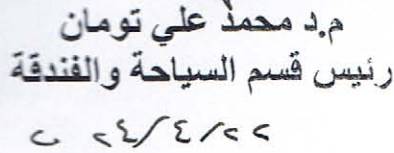 م.د محمد علي تومان
رئيس قسم السياحة والفندقة
٢٠٢٤/٤/٢٢